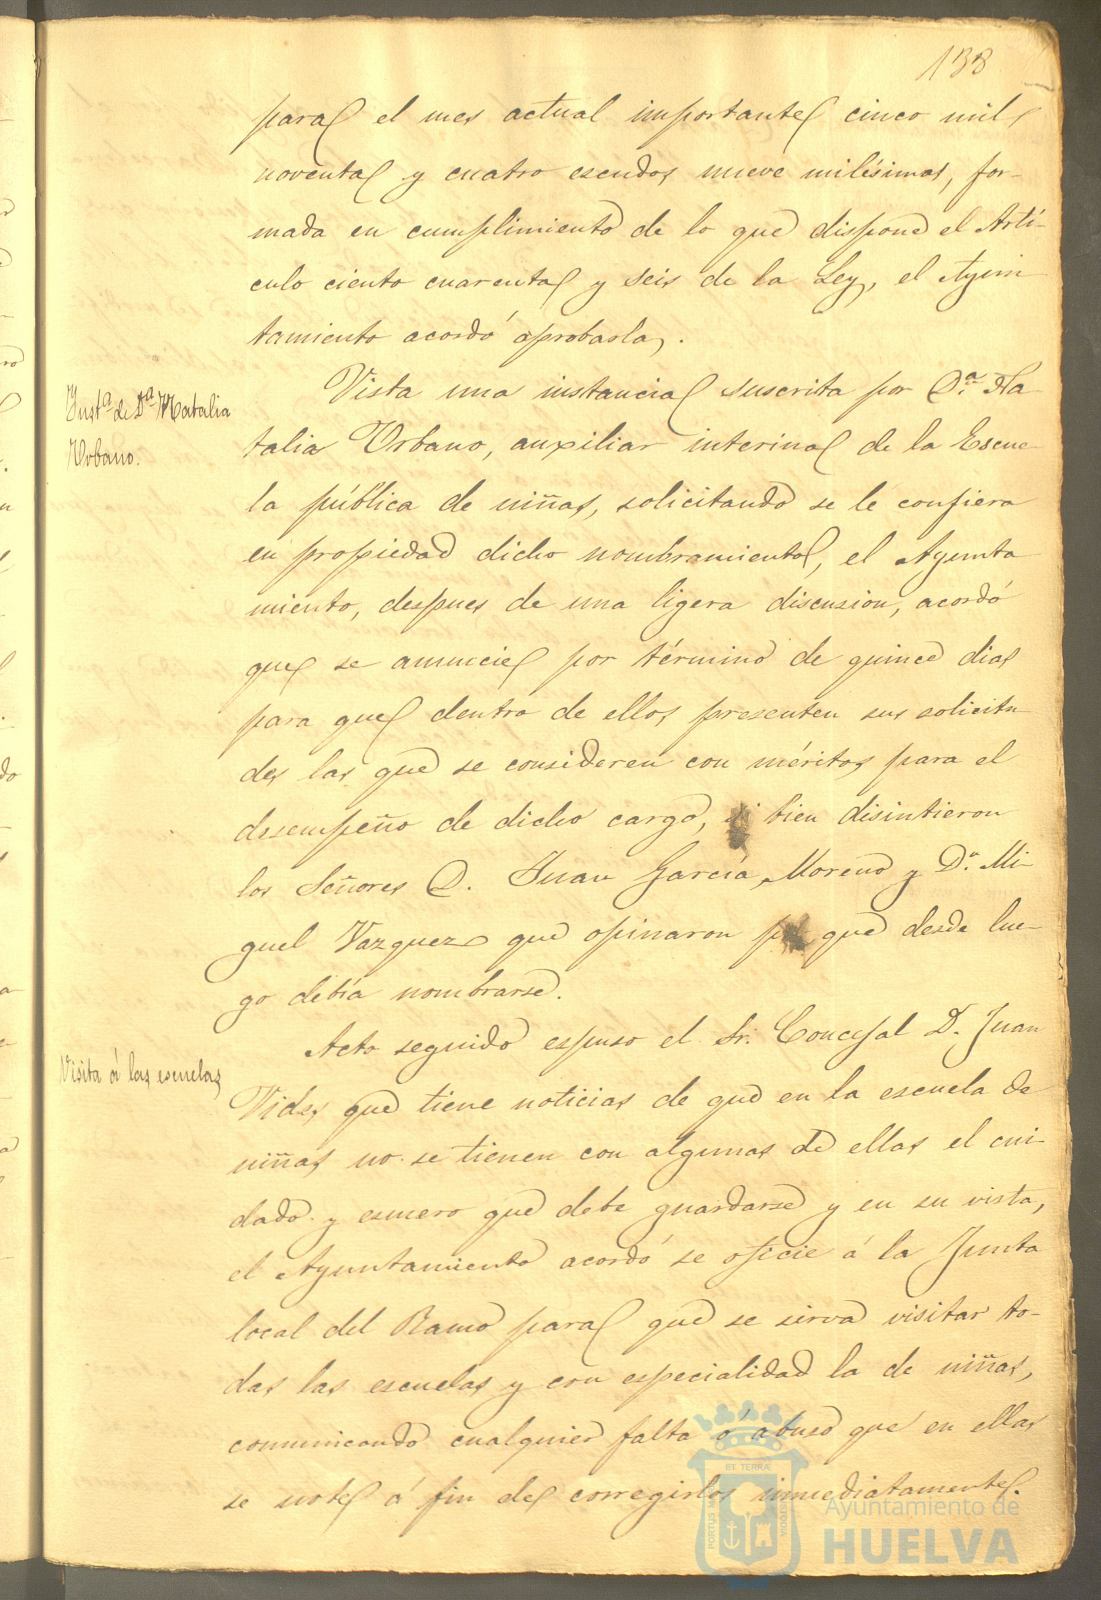 138
para el mes actual importante cinco mil
noventa y cuatro escudos nueve milésimas, for-
mada en cumplimiento de lo que dispone el Artí-
culo ciento cuarenta y seis de la Ley, el Ayun
tamiento acordó aprobarla.
Inst.ª de D.ª Natalia
Urbano.
Vista una instancia suscrita por D.ª Na
talia Urbano, auxiliar interina de la Escue
la pública de niñas, solicitando se le confiera
en propiedad dicho nombramiento, el Ayunta
miento, despues de una ligera discusion, acordó
que se anuncie por término de quince dias
para que dentro de ellos presenten sus solicitu
des las que se consideren con méritos para el
desempeño de dicho cargo, si bien disintieron
los Señores D. Juan García Moreno y D.n Mi-
guel Vazquez que opinaron que desde lue-
go debía nombrarse.
Visita á las escuelas
Acto seguido espuso el Sr. Concejal D. Juan
Vides que tiene noticias de que en la escuela de
niñas no se tienen con algunas de ellas el cui-
dado y esmero que debe guardarse y en su vista,
el Ayuntamiento acordó se oficie á la Junta
local del Ramo para que se sirva visitar to-
das las escuelas y con especialidad la de niñas,
comunicando cualquier falta ó abuso que en ellas
se note á fin de corregirlos inmediatamente.
Ayuntamiento de
HUELVA